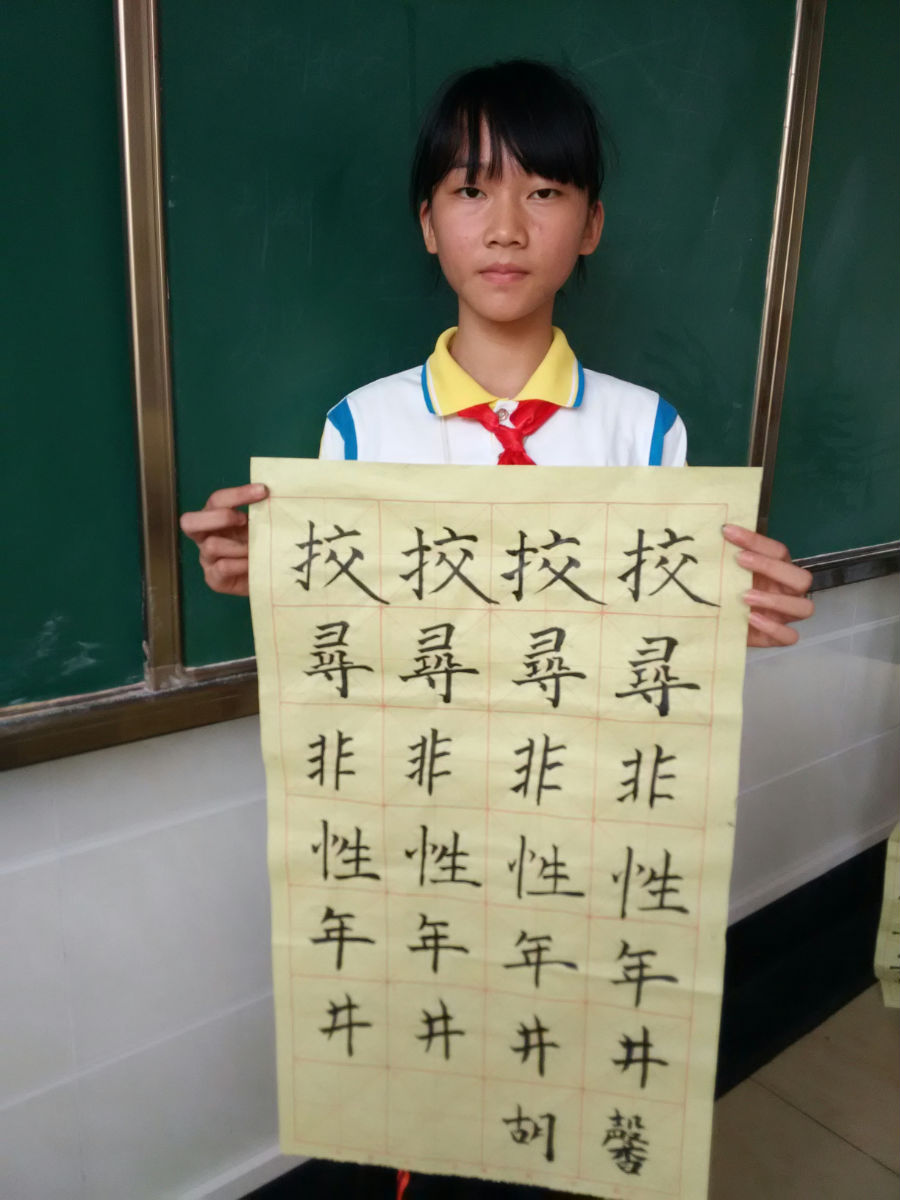 挍挍挍挍
尋尋尋尋
非非非非
性性性性
年年年年
井井井井
胡馨